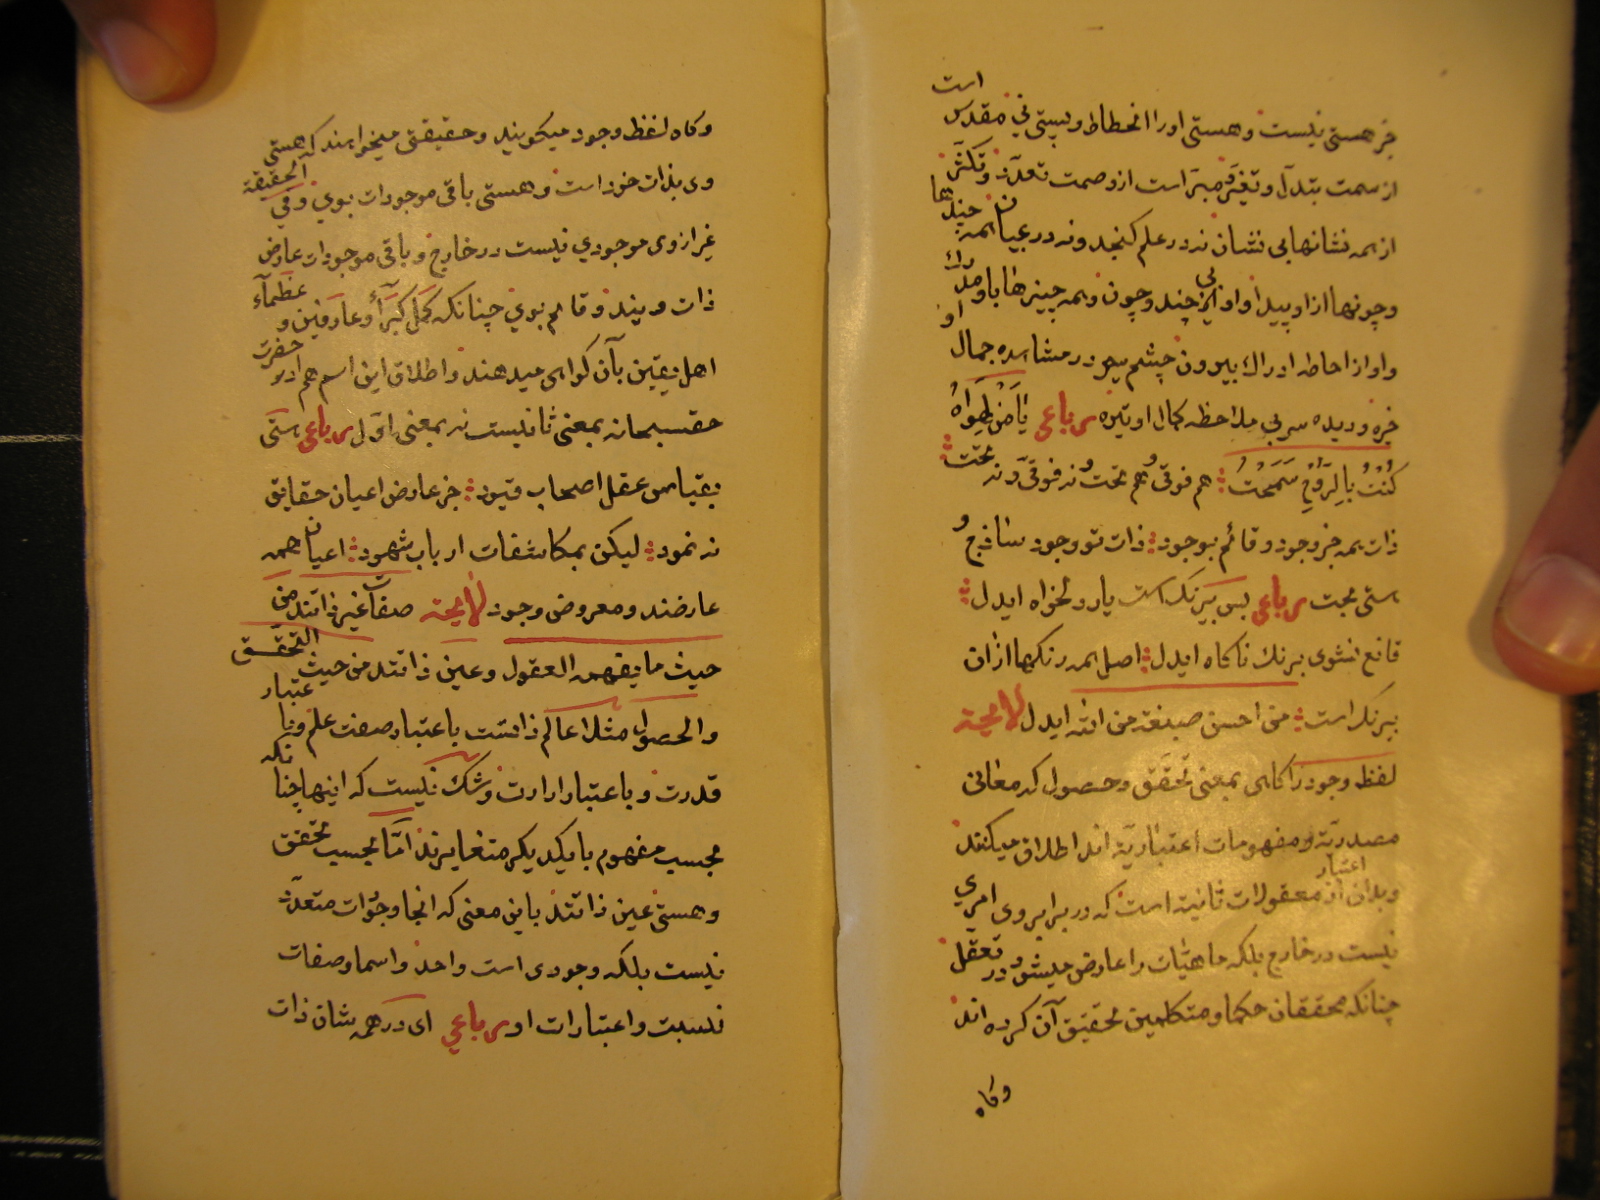 جز هستی نیست و هستی او را انحطاط و پستی نی مقدس است
از سمت تبدل و تغیر و مبرّاست از وصمت تعدّد و تکثّر
از همه نشانها بی نشان نه در علم گنجد و نه در عیان همه چندها
و چونها از او پیدا و او از بی چند و چون و همه چیزها باو مدرك
و او از احاطه ادراك بیرون چشم سر در مشاهده جمال او
خیره و دیده سر بی ملاحظه کمال او تیره رباعی یا من لهواه
کنت بالروح سمحت هم فوقی و هم تحت و نه فوقی و نه تحت
ذات همه جز وجود و قائم بوجود ذات تو وجود ساذج و
هستی بحت رباعی بس بیرنک است یار دلخواه ایدل
قانع نشوی برنك ناکاه ایدل اصل همه رنکها از ان
بیرنک است من احسن صبغة من الله ایدل لایحة
لفظ وجود را کاهی بمعنی تحقق و حصول که معانی
مصدریّة و مفهومات اعتباریّة اند اطلاق میکنند
و بدان اعتبار از معقولات ثانیة است که در برابر وی امری
نیست در خارج بلکه ماهیّات را عارض میشود در تعقل
چنانکه محققان حکما و متکلمین تحقیق آن کرده اند
وکاه
وکاه لفظ وجود میکویند و حقیقتی میخواهند که هستی
وی بذات خود است و هستی باقی موجودات بوی و فی الحقیقة
غیر از وی موجودی نیست در خارج و باقی موجودات عارض
ذات ویند و قایم بوی چنانکه کمّل کبراء و عارفین و عظماء
اهل یقین بآن کواهی میدهند و اطلاق این اسم هم بر حضرت
حق سبحانه بمعنی ثانیست نه بمعنی اول رباعی هستی
بقیاس عقل اصحاب قیود جز عارض اعیان حقایق
نه نمود لیکن بمکاشفات ارباب شهود اعیان همه
عارضند و معروض وجود لایحة صفات غیر ذاتند من
حیث ما یفهمه العقول و عین ذاتند من حیث التحقق
والحصول مثلا عالم ذاتست باعتبار صفت علم و باعتبار
قدرت و باعتبار ارادت و شک نیست که اینها چنانکه
بحسب مفهوم با یکدیکر متغایرند امّا بحسب تحقق
و هستی عین ذاتند باین معنی که انجا وجودات متعدّد
نیست بلکه وجودی است واحد و اسما و صفات
نسبت و اعتبارات او رباعی ای در همه شان ذات